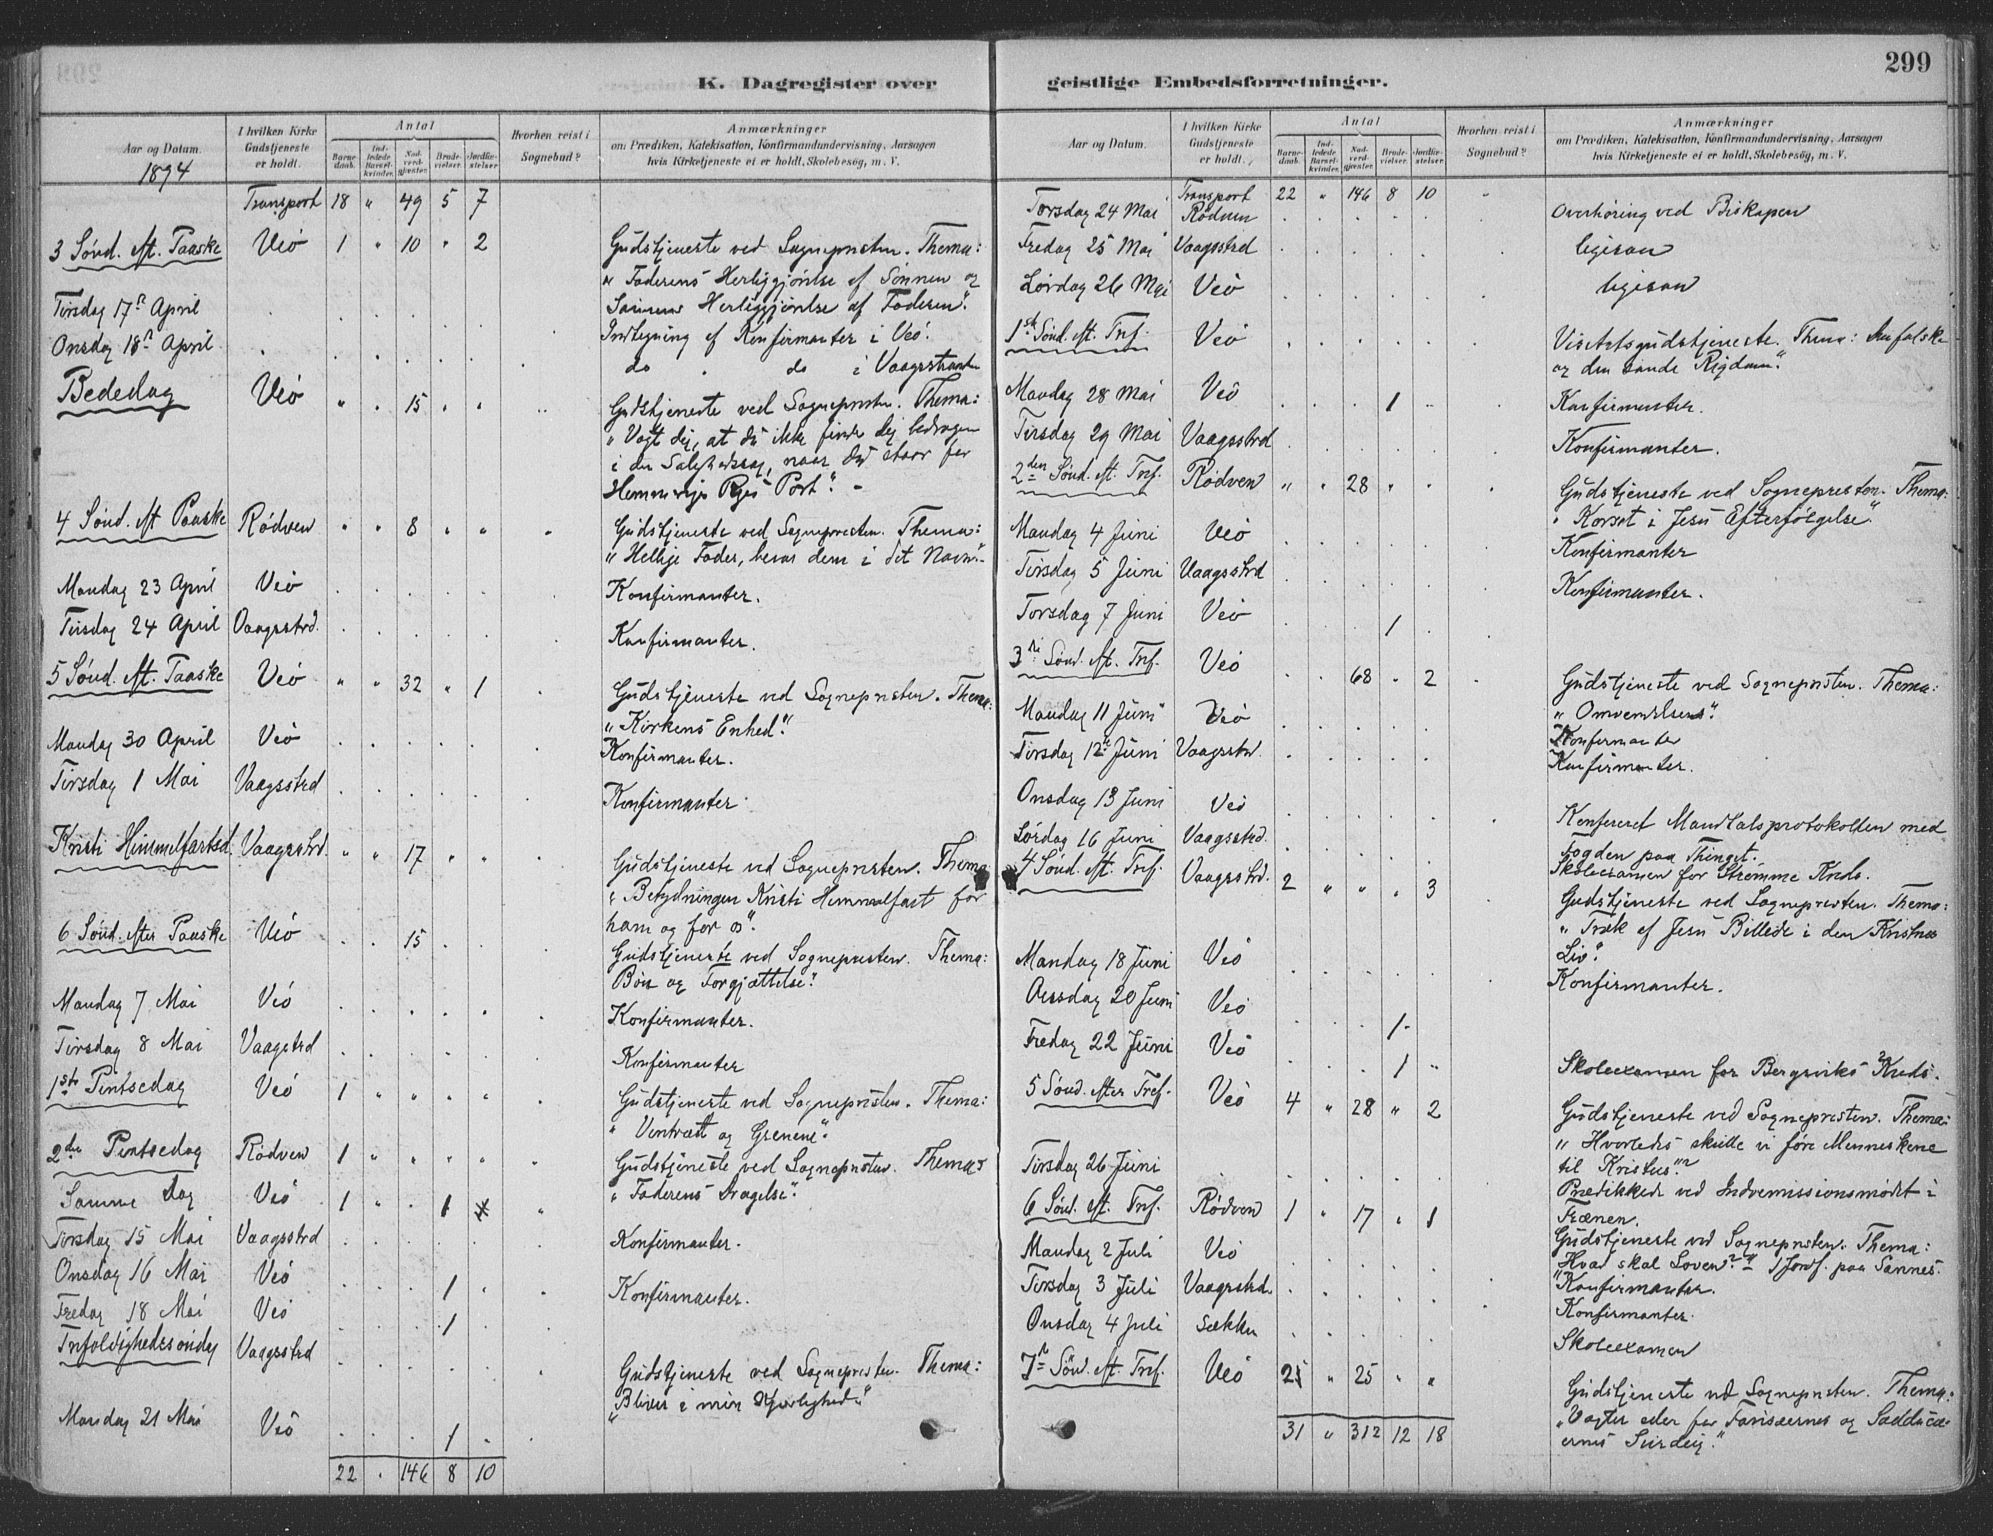 299
K. Dagregister over
Aar og Datum. I hvilken Kirke Gudstjeneste er holdt. Antal Barnedaab. Indledede Barselkvinder. Nadverdgjæster. Brudevielser. Jordfæstelser. Hvorhen reist i Sognebud? Anmærkninger om Prædiken, Katekisation, Konfirmandundervisning, Aarsagen hvis Kirketjeneste ei er holdt, Skolebesög, m. V.
1894
Transport 18 " 49 5 7
3 Sønd. eft. Paaske Veö 1 " 10 " 2 Gudstjeneste ved Sognepresten. Thema:
"Faderens Herliggjörelse af Sönnen og
Sönnens Herliggjörelse af Faderen".
Tirsdag 17de April Indtegning af Konfirmanter i Veö.
Onsdag 18de April do do i Vaagstranden
Bededag Veö " " 15 " " Gudstjeneste ved Sognepresten. Thema:
"Vogt dig, at du ikke finder dig bedragen
i din Salighedssag, naar du staar for
Himmeriges Riges Port". -
4 Sönd. eft Paaske Rödven " " 8 " " Gudstjeneste ved Sognepresten. Thema:
"Hellige Fader, bevar dem i dit Navn".
Mandag 23 April Veö Konfirmanter.
Tirsdag 24 April Vaagsstrd. Konfirmanter.
5 Sönd. eft. Paaske Veö " " 32 " 1 Gudstjeneste ved Sognepresten. Thema:
"Kirkens Enhed".
Mandag 30 April Veö Konfirmanter.
Tirsdag 1 Mai Vaagsstrd Konfirmanter.
Kristi Himmelfartsd. Vaagsstrd. " " 17 " " Gudstjeneste ved Sognepresten. Thema
"Betydningen Kristi Himmelfart for
ham og for os".
6 Sönd. efter Paaske Veö 15 Gudstjeneste ved Sognepresten. Thema:
Bön og Forgjættelse".
Mandag 7 Mai Veö Konfirmanter.
Tirsdag 8 Mai Vaagstrd Konfirmanter
1ste Pintsedag Veö 1 " " " " Gudstjeneste ved Sognepresten. Thema:
"Vintræet og Grenene".
2den Pintsedag Rödven 1 " " " " Gudstjeneste ved Sognepresten. Thema:
"Faderens Dragelse".
Samme Dag Veö 1 " . 1
Tirsdag 15 Mai Vaagsstrd Konfirmanter.
Onsdag 16 Mai Veö 1 Konfirmanter.
Fredag 18 Mai Veö 1
Trefoldighedssöndag Vaagsstrd Gudstjeneste ved Sognepresten. Thema:
"Bliver i min Kjærlighed".
Mandag 21 Mai Veö 1
22 . 146 8 10
geistlige Embedsforretninger.
Aar og Datum. I hvilken Kirke Gudstjeneste er holdt. Antal Barnedaab. Indledede Barselkvinder. Nadverdgjæster. Brudevielser. Jordfæstelser. Hvorhen reist i Sognebud? Anmærkninger om Prædiken, Katekisation, Konfirmandundervisning, Aarsagen hvis Kirketjeneste ei er holdt, Skolebesög, m. V.
Transport 22 " 146 8 10
Torsdag 24 Mai Rödven Overhöring ved Biskopen
Fredag 25 Mai Vaagsstrd ligesaa
Lördag 26 Mai Veö ligesaa
1ste Sönd. eft. Tref. Veö Visitatsgudstjeneste. Thema: Den falske
og den sande Rigdom".
Mandag 28 Mai Veö 1 Konfirmanter.
Tirsdag 29 Mai Vaagsstrd Konfirmanter.
2den Sönd. eft. Tref. Rödven " " 28 " " Gudstjeneste ved Sognepresten. Thema:
"Korset i Jesu Efterfölgelse".
Mandag 4 Juni Veö Konfirmanter
Tirsdag 5 Juni Vaagsstrd Konfirmanter.
Torsdag 7 Juni Veö 1
3die Sönd. eft. Tref. Veö 68 " 2 Gudstjeneste ved Sognepresten. Thema:
"Omvendelsen".
Mandag 11 Juni Veö Konfirmanter
Tirsdag 12te Juni Vaagsstrd. Konfirmanter.
Onsdag 13 Juni Veö Konfereret Mandtalsprotokollen med
Fogden paa Thinget.
Lördag 16 Juni Vaagsstrd. Skoleexamen for Strømme Kreds.
4 Sönd. eft. Tref. Vaagsstrd. 2 " " " 3 Gudstjeneste ved Sognepresten. Thema:
"Træk af Jesu Billede i den Kristnes
Liv".
Mandag 18 Juni Veö Konfirmanter.
Onsdag 20 Juni Veö 1
Fredag 22 Juni Veö 1 " Skoleexamen for Bergsviks Kreds.
5 Sönd. efter Tref. Veö 4 " 28 " 2 Gudstjeneste ved Sognepresten. Thema:
"Hvorledes skulle vi före Menneskene
til Kristus?"
Tirsdag 26 Juni Prædikede ved Indremissionsmødet i
Frænen.
6 Sönd. eft. Tref. Rödven 1 " 17 " 1 Gudstjeneste ved Sognepresten. Thema:
"Hvad skal Loven?" 1 Jordf. paa Sannes.
Mandag 2 Juli Veö Konfirmanter.
Tirsdag 3 Juli Vaagsstrd. Konfirmanter.
Onsdag 4 Juli Sækken Skoleexamen
7de Sönd. eft. Tref. Veö 2 " 25 " " Gudstjeneste ved Sognepresten. Thema:
"Vogter eder for Farisæernes og Sadducæ-
ernes Surdeig".
31 " 312 12 18